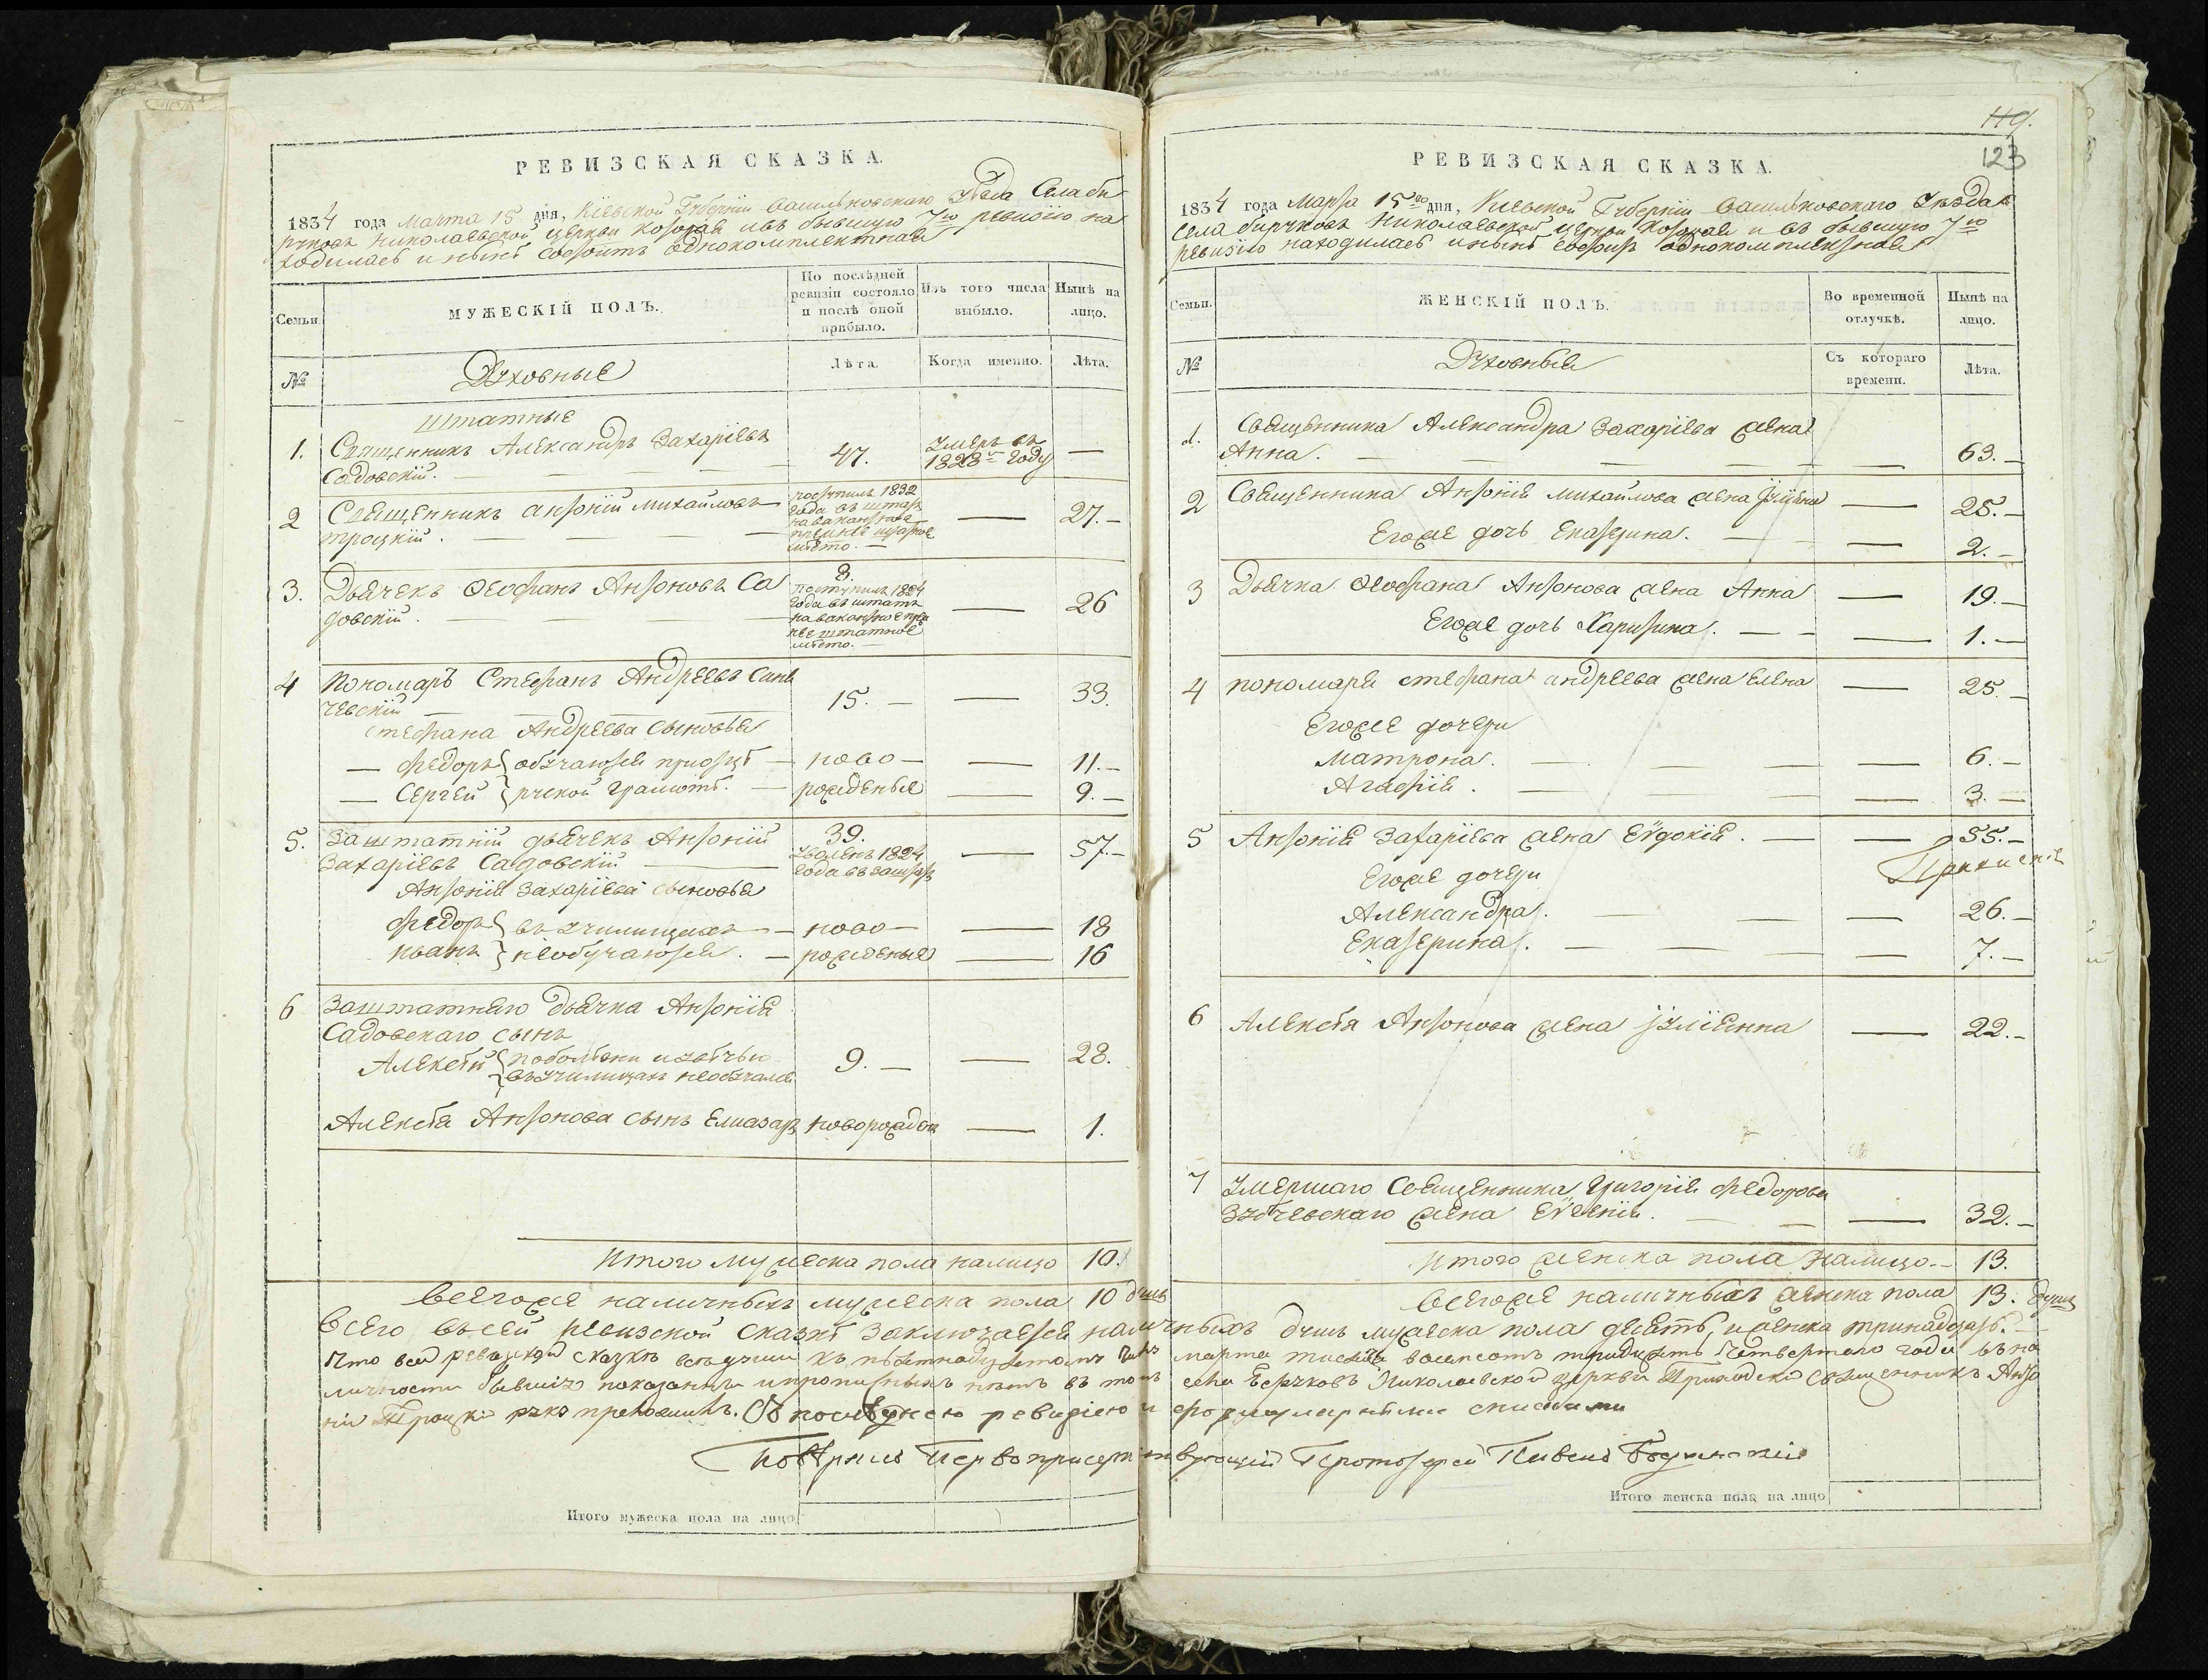 РЕВИЗСКАЯ СКАЗКА.
1834 года Марта 15 дня, Кіевской Губерніи Васильковскаго Уѣзда Села Би
рчковъ Николаевской церкви которая и въ бывшую 7ю ревизію на
ходилась и нынѣ состоитъ однокомплектная
Семьи.
МУЖЕСКІЙ ПОЛЪ.
По послѣдней
ревизіи состояло
и послѣ оной
прибыло.
Изъ того числа
выбыло.
Нынѣ на
лицо.
№
Духовные
Лѣта.
Когда именно.
Лѣта.
Штатные
1. Священникъ Александръ Захаріевъ
Садовскій. — 47. Умеръ въ 1828м году —
2 Священникъ Антоній Михайловъ
Троцкій. — поступилъ 1832
года въ штатъ
на вакантное
прежнее штатное
мѣсто. — — 27. —
3. Дьячекъ Ѳеофанъ Антоновъ Са
довскій. — 8.
Поступилъ 1824
года въ штатъ
на вакантное преж
нее штатное
мѣсто. — — 26
4 Пономарь Стефанъ Андреевъ Синь
чевскій — 15. — — 33.
Стефана Андреева сыновья
— Федоръ обучаются при отцѣ — ново — — 11. —
— Сергей русской грамотѣ. — рожденые — 9. —
5. Заштатній дьячекъ Антоній
Захаріевъ Садовскій — 39.
Уволенъ 1824
года въ заштатъ — 57. —
Антонія Захаріева сыновья
Федоръ въ училищахъ — ново — — 18
Иванъ необучаются. — рожденые — 16
6 Заштатнаго дьячка Антонія
Садовскаго сынъ
Алексѣй по болѣзни
въ училищахъ необучался 9. — — 28.
Алексѣя Антонова сынъ Елиазаръ новорожден — 1.
Итого мужеска пола налицо 10.
Всегоже наличныхъ мужеска пола 10 душъ
РЕВИЗСКАЯ СКАЗКА.
119.
123
1834 года Марта 15го дня, Кіевской Губерніи Васильковскаго Уѣзда
села Бирчковъ Николаевской церкви которая и въ бывшую 7ю
ревизію находилась и нынѣ состоитъ однокомплектная
Семьи.
ЖЕНСКІЙ ПОЛЪ.
Во временной
отлучкѣ.
Нынѣ на
лицо.
№
Духовныя
Съ котораго
времени.
Лѣта.
1. Священника Александра Захаріева жена
Анна. — — 63. —
2 Священника Антонія Михайлова жена Іуліана — 25. —
Егоже дочь Екатерина. — — 2. —
3 Дьячка Ѳеофана Антонова жена Анна — 19. —
Егоже дочь Харитина. — — 1. —
4 пономаря Стефана Андреева жена Елена — 25. —
Егоже дочери
Матрона. — — 6. —
Агафія. — — 3. —
5 Антонія Захаріева жена Еѵдокія. — — 55. —
Егоже дочери
Александра. — — 26. —
Екатерина. — — 7. —
6 Алексѣя Антонова жена Іуліянна — 22. —
7 Умершаго Священника Григорія Федорова
Зубчевскаго жена Еѵгенія. — — 32. —
Итого женска пола налицо. — 13.
Всегоже наличныхъ женска пола 13. душъ
Всего въ сей ревизской сказкѣ заключается наличныхъ душъ мужеска пола десять, и женска тринадцать. —
Что въ сей ревизской сказкѣ всѣ души къ пятнадцатому числу марта тысяча восемсотъ тридцать четвертаго года въ на
личности бывшіе показаны и прописныхъ нѣтъ въ томъ села Берчковъ Николаевской церкви Приходскій священникъ Анто
ній Троцкій руку приложилъ. Съ последнею ревизіею и формулярными списками
Повѣрилъ Первоприсутствующій Протоіерей
Итого мужеска пола на лицо
Итого женска пола на лицо